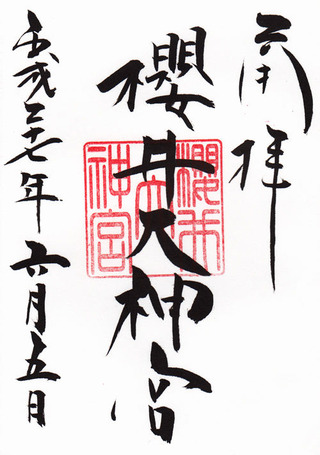 奉拝
櫻井大神宮
櫻井大神宮
平成二十七年六月五日